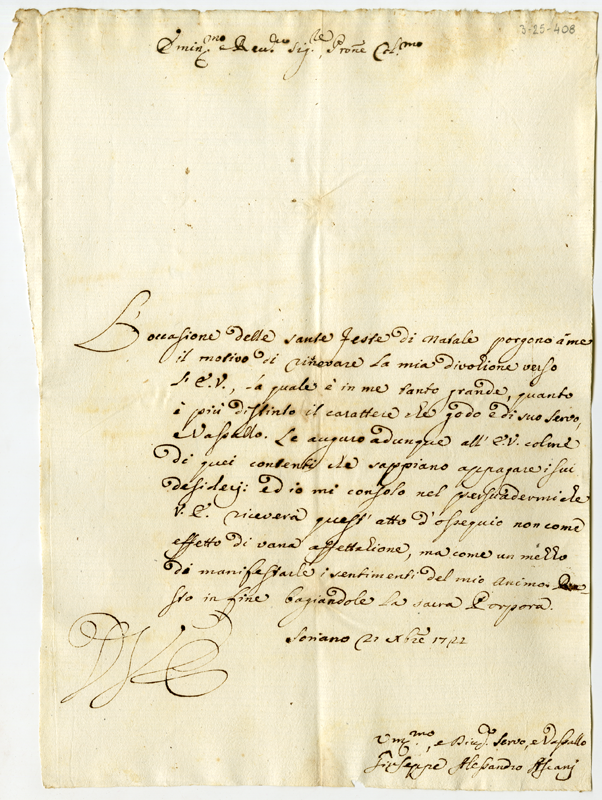 3-25-408
Emin.mo e Reud.mo Sig.re, Prone Col.mo
L'occasione delle sante feste di Natale porgono à me
il motivo di rinovare la mia divozione verso
l'E.V., la quale è in me tanto grande, quanto
è più distinto il carattere che godo è di suo servo,
e Vassallo. Le auguro adunque all'E.V. colme
di quei contenti che sappiano appagare i sui
desiderj: ed io mi consolo nel persuadermi che
V.E. riceverà quest'atto d'ossequio non come
effetto di vana affettazione, ma come un mezzo
di manifestarle i sentimenti del mio animo. Re-
sto in fine bagiandole la sacra Porpora.
Soriano 21 Xbre 1722
D V E
Um.mo, e Div. Servo, e Vassallo
Giuseppe Alessandro Ascani